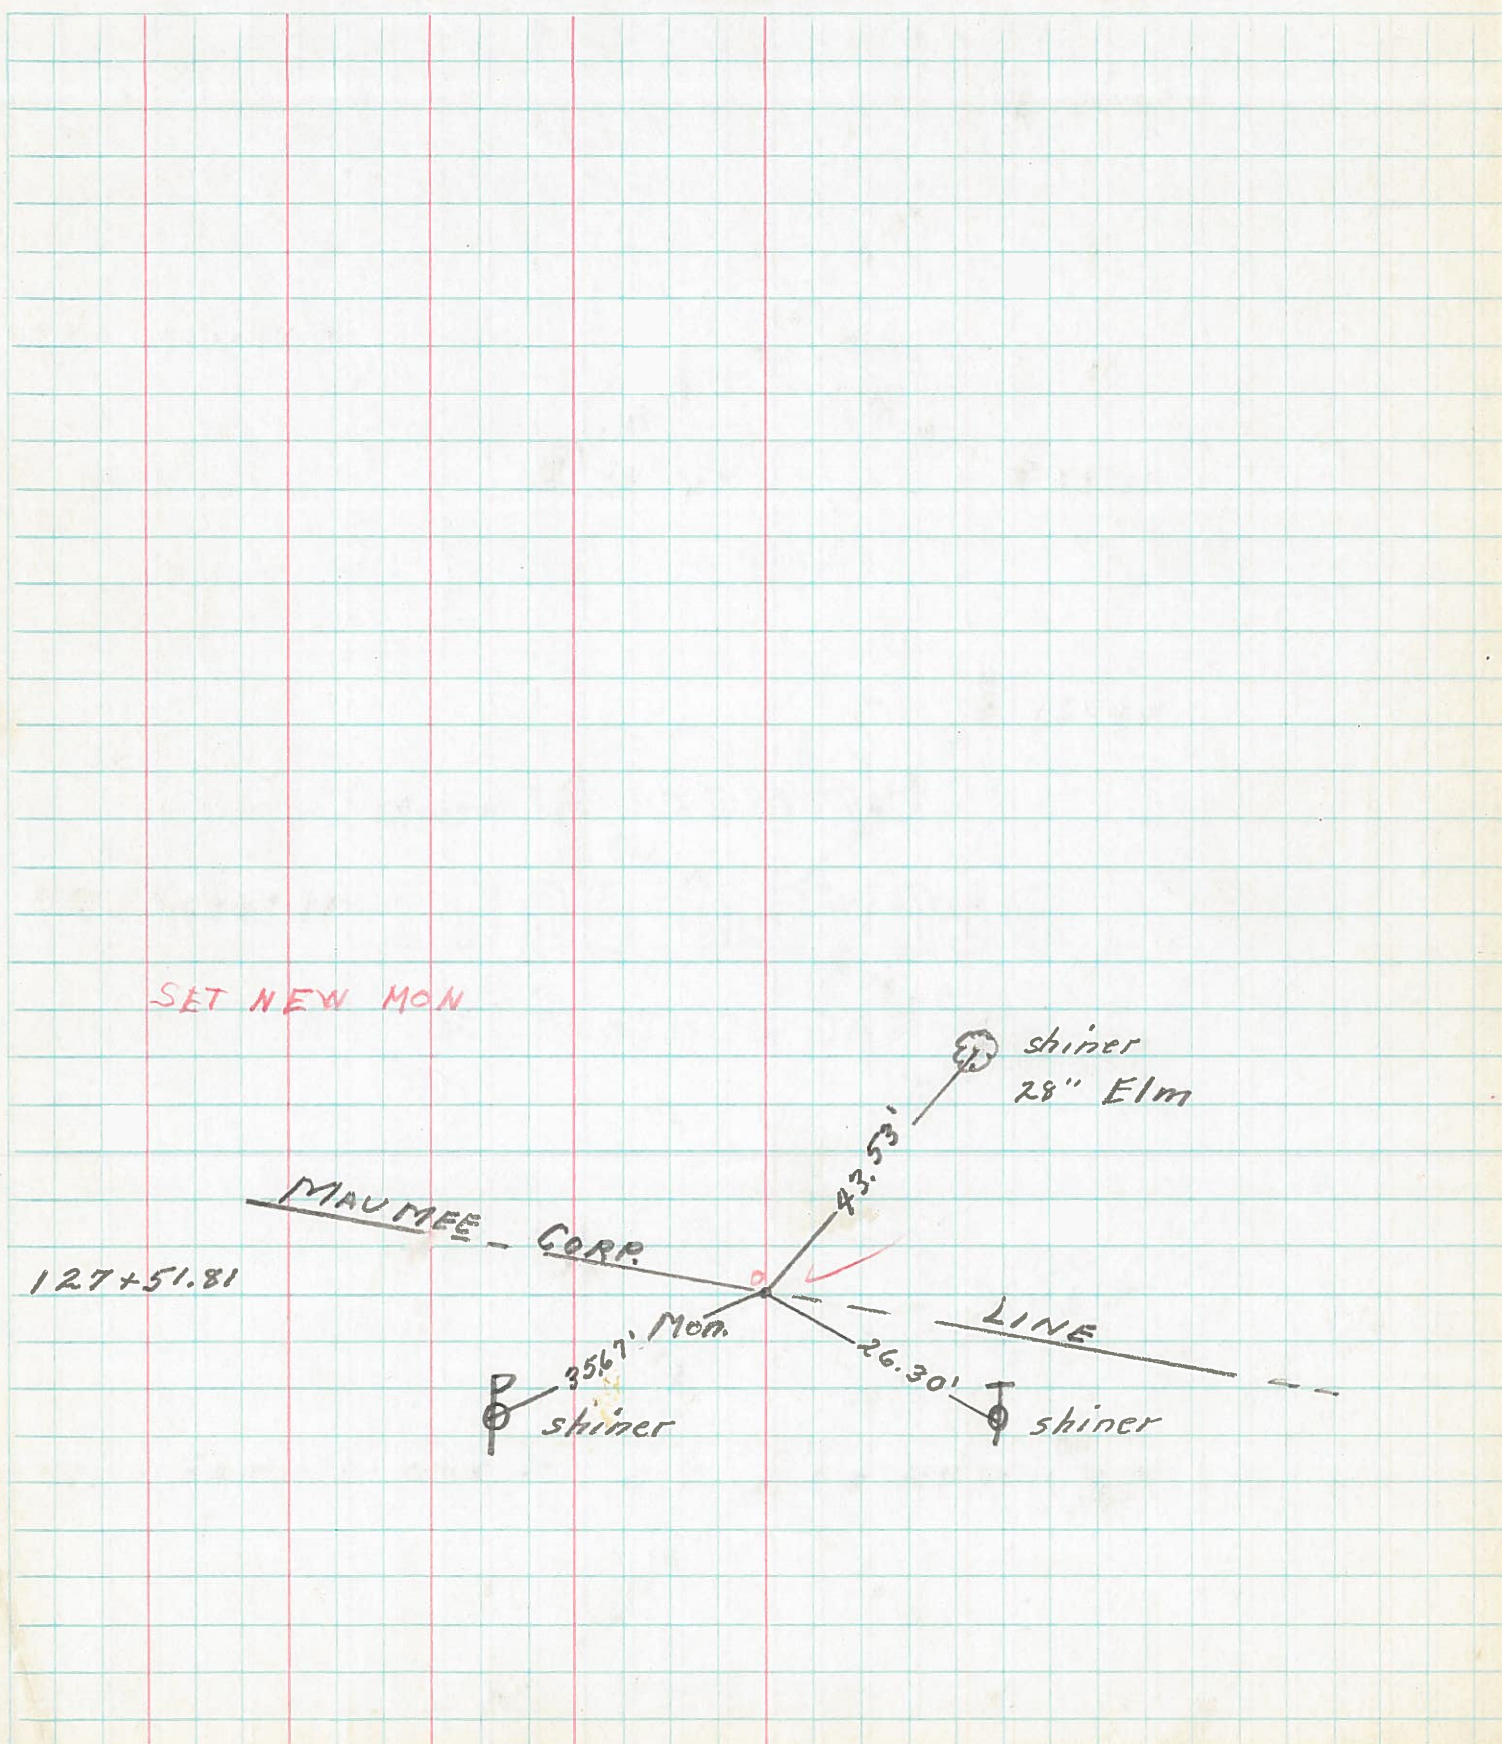 SET NEW MON
shiner
28" Elm
43.53'
MAUMEE CORP. LINE
127+51.81
Mon.
35.67'
26.30'
P
shiner
T
shiner